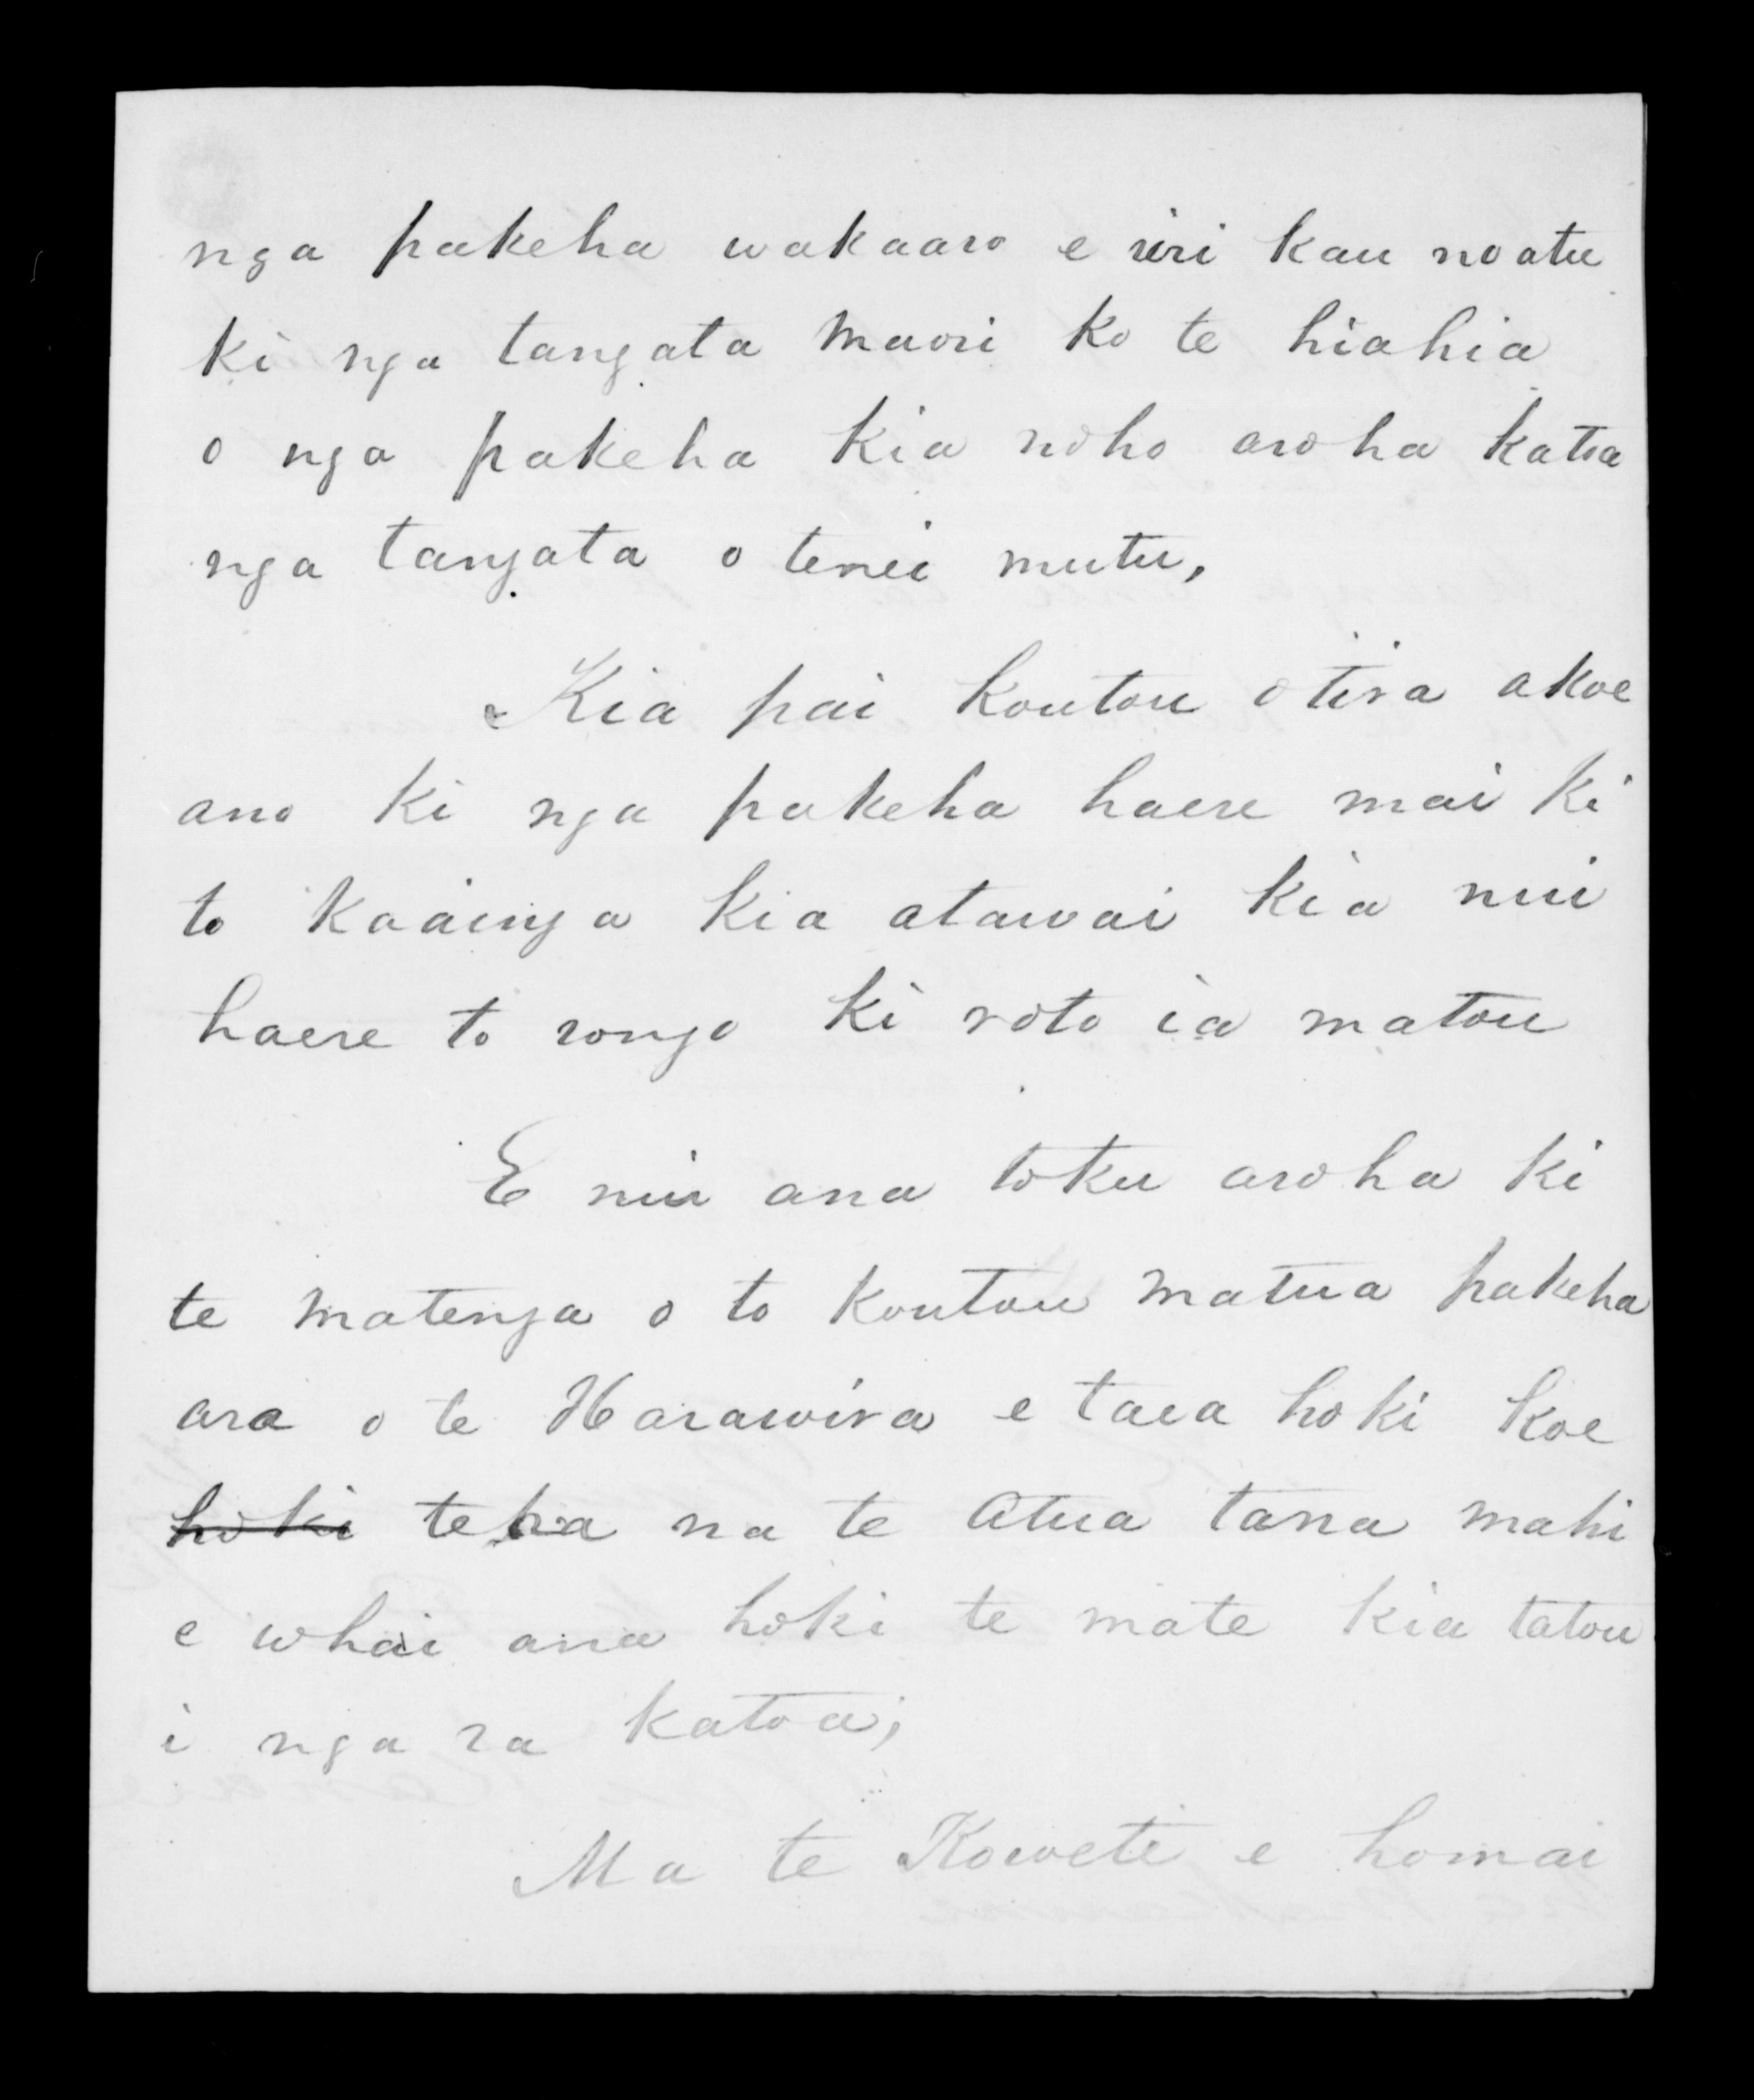 nga pakeha wakaaro e riri kau noatu
ki nga tangata maori ko te hiahia
o nga pakeha kia noho aroha katoa
nga tangata o tenei mutu,
Kia pai koutou otira akoe
ano ki nga pakeha haere mai ki
to kaainga kia atawai kia nui
haere to rongo ki roto ia matou
E nui ana toku aroha ki
te matenga o to koutou matua pakeha
ara o te Harawira e taea hoki koe
hoki teha na te Atua tana mahi
e whai ana hoki te mate kia tatou
i nga ra katoa;
Ma te Kawete e homai